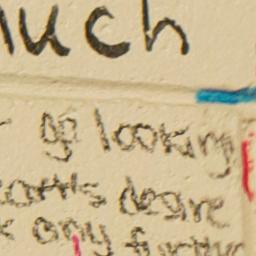 much
go looking
hearts desire
any further